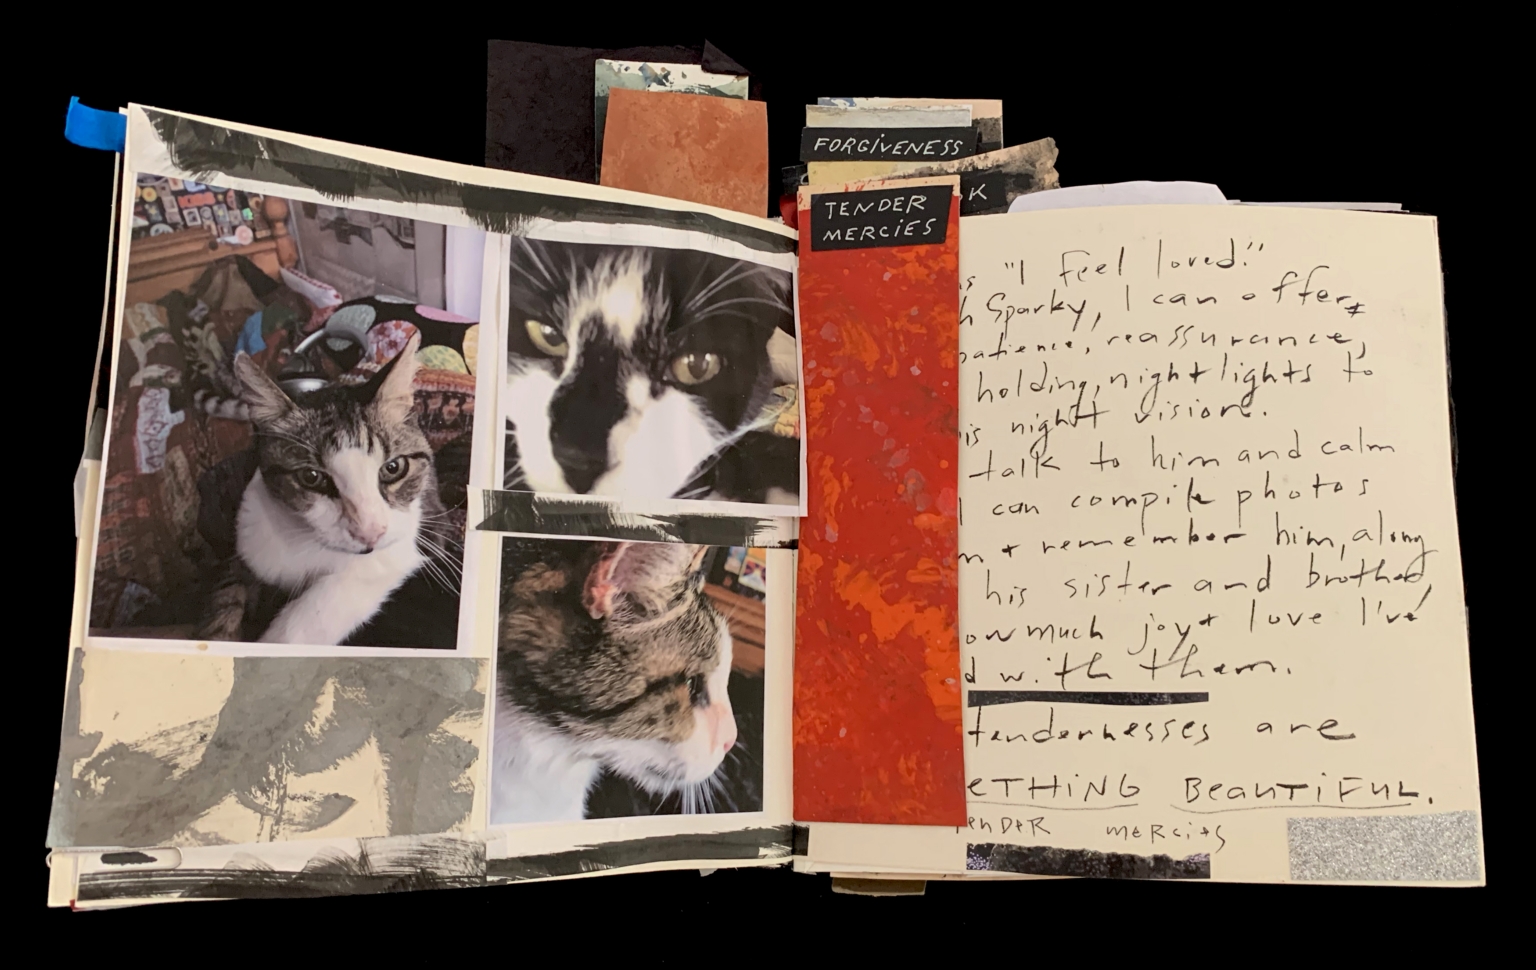 FORGIVENESS
K
TENDER
MERCIES
"I feel loved."
Sparky, I can offer
patience, reassurance,
holding, nightlights to
night vision.
talk to him and calm
I can compile photos
+ remember him, along
his sister and brother,
ow much joy + love I've
d with them.
tendernesses are
eTHING BeauTiFUL.
enDeR meRcies